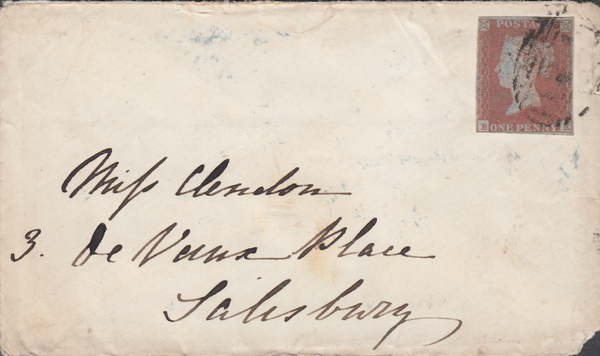 POSTAGE
ONE PENNY
Miss Clendon
3. De Vaux Place
Salisbury